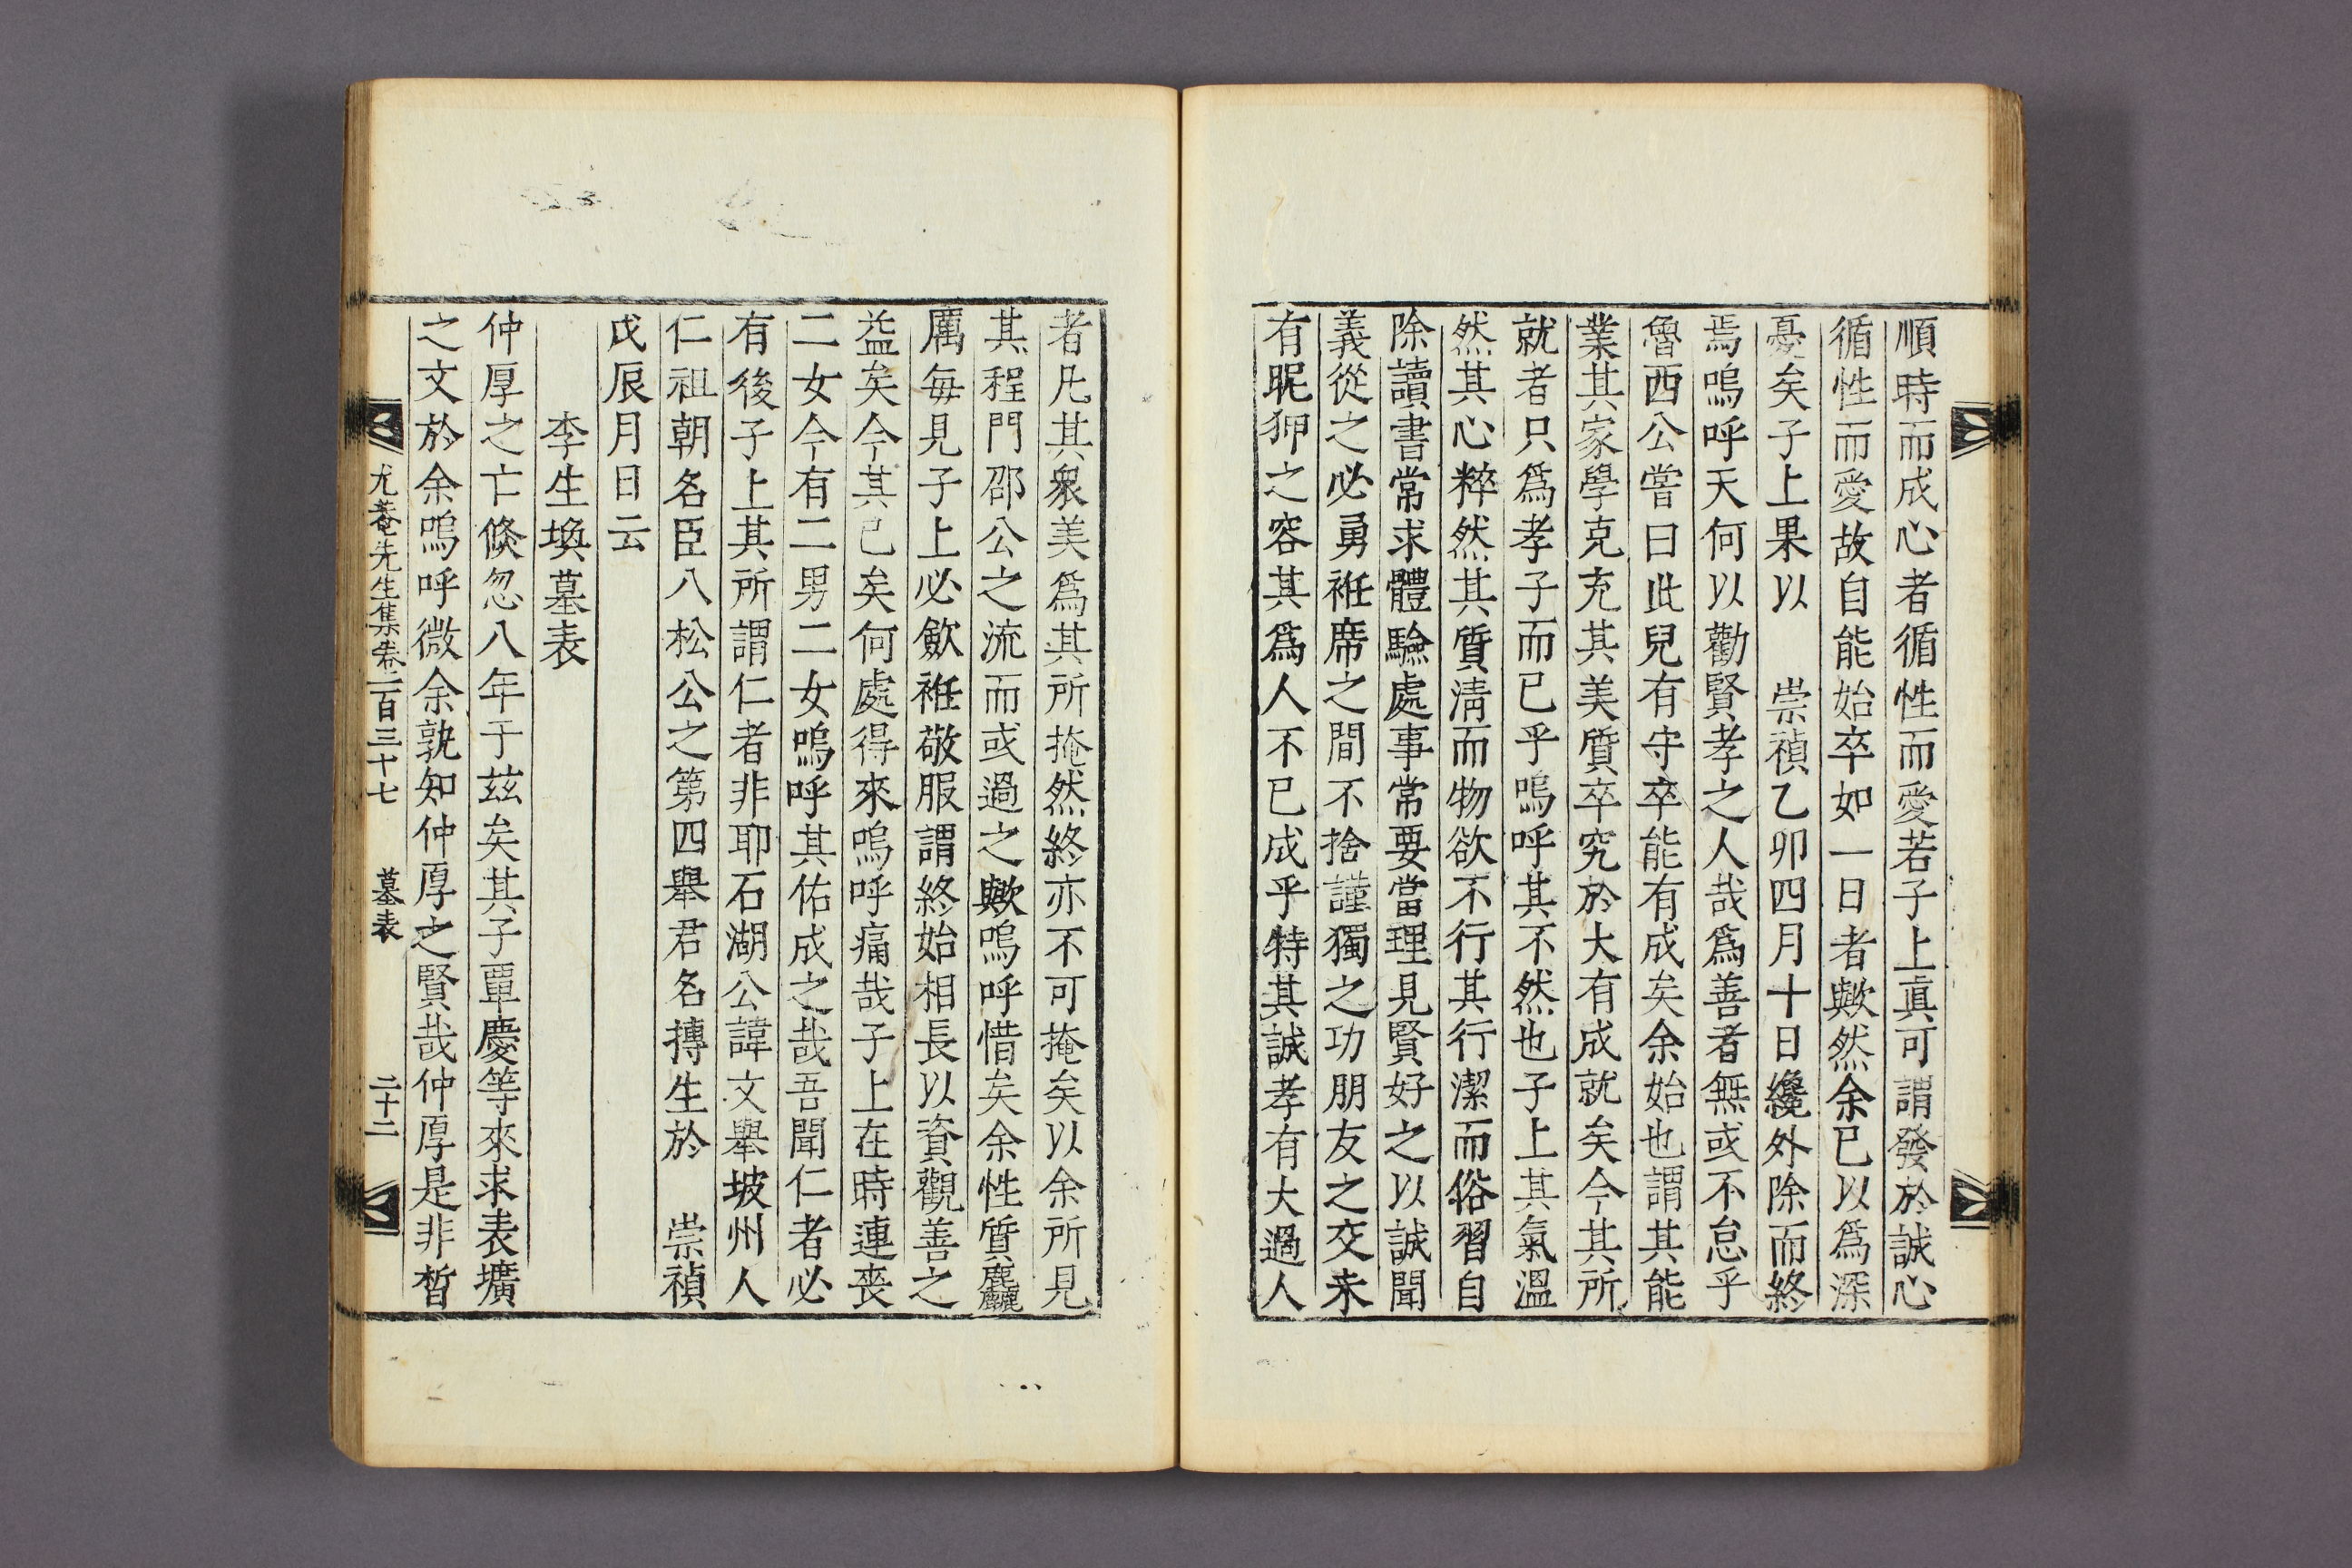 順時而成心者循性而愛若子上眞可謂發於誠心
循性而愛故自能始卒如一日者歟然余已以爲深
憂矣子上果以　崇禎乙卯四月十日纔外除而終
焉嗚呼天何以勸賢孝之人哉爲善者無或不怠乎
魯西公嘗曰此兒有守卒能有成矣余始也謂其能
業其家學克充其美質卒究於大有成就矣今其所
就者只爲孝子而已乎嗚呼其不然也子上其氣溫
然其心粹然其質淸而物欲不行其行潔而俗習自
除讀書常求體驗處事常要當理見賢好之以誠聞
義從之必勇袵席之間不捨謹獨之功朋友之交未
有昵狎之容其爲人不已成乎特其誠孝有大過人
者凡其衆美爲其所掩然終亦不可掩矣以余所見
其程門邵公之流而或過之歟嗚呼惜矣余性質麤
厲每見子上必歛袵敬服謂終始相長以資觀善之
益矣今其已矣何處得來嗚呼痛哉子上在時連喪
二女今有二男二女嗚呼其佑成之哉吾聞仁者必
有後子上其所謂仁者非耶石湖公諱文擧坡州人
仁祖朝名臣八松公之第四擧君名摶生於　崇禎
戊辰月日云
李生煥墓表
仲厚之亡倏忽八年于玆矣其子覃慶等來求表壙
之文於余嗚呼微余孰知仲厚之賢哉仲厚是非晳
尤菴先生集卷一百三十七　墓表　二十二